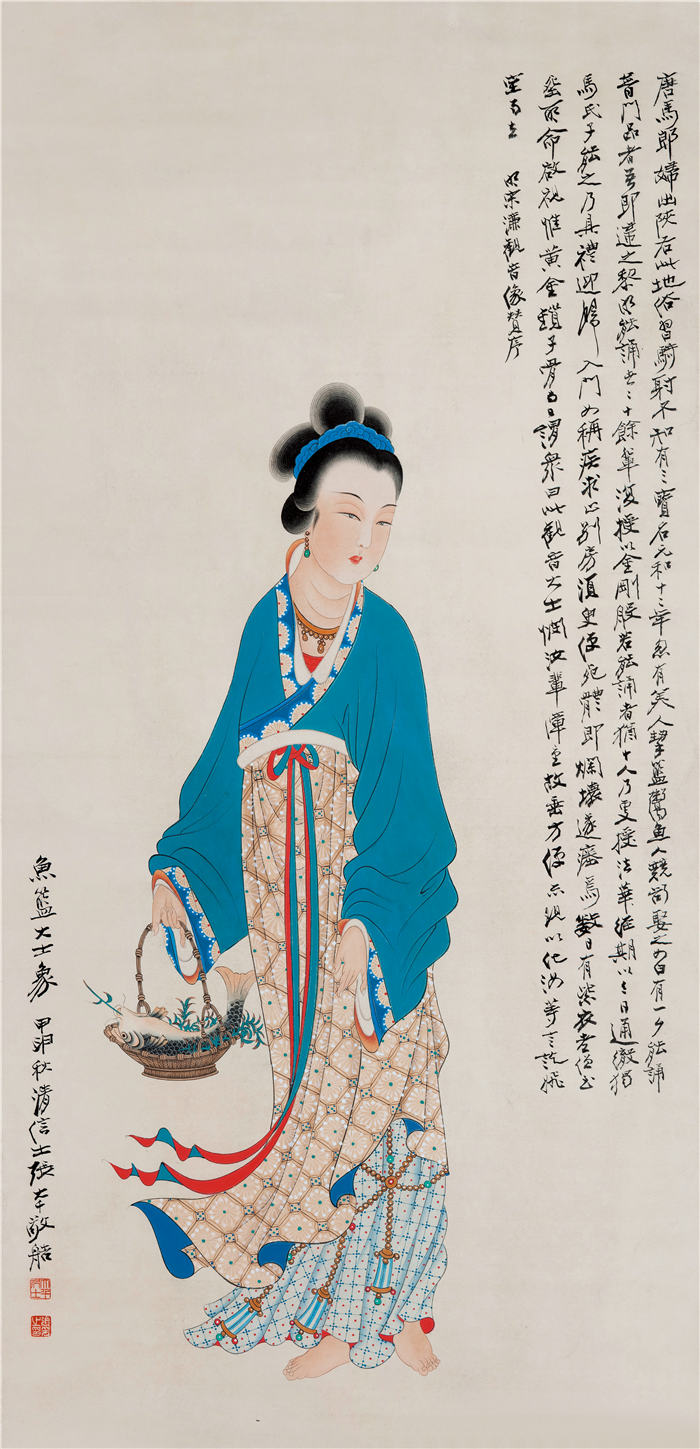 唐馬郎婦出陝右此地俗習騎射不知有三寶名元和十二年忽有美人挈籃鬻魚人競欲娶之女曰有一夕能誦
普門品者吾即適之黎明能誦者二十餘輩復授以金剛般若能誦者猶十人乃更授法華經期以三日通徹獨
馬氏子能之乃具禮迎歸入門女稱疾求止別房須臾便死體即爛壞遂瘞焉數日有紫衣老僧至
塟所命啟視惟黃金鎖子骨而已謂眾曰此觀音大士憫汝輩障重故垂方便示現以化汝等言訖飛
空而去 明宋濂觀音像贊序
魚籃大士象 甲申秋清信士張大千敬造